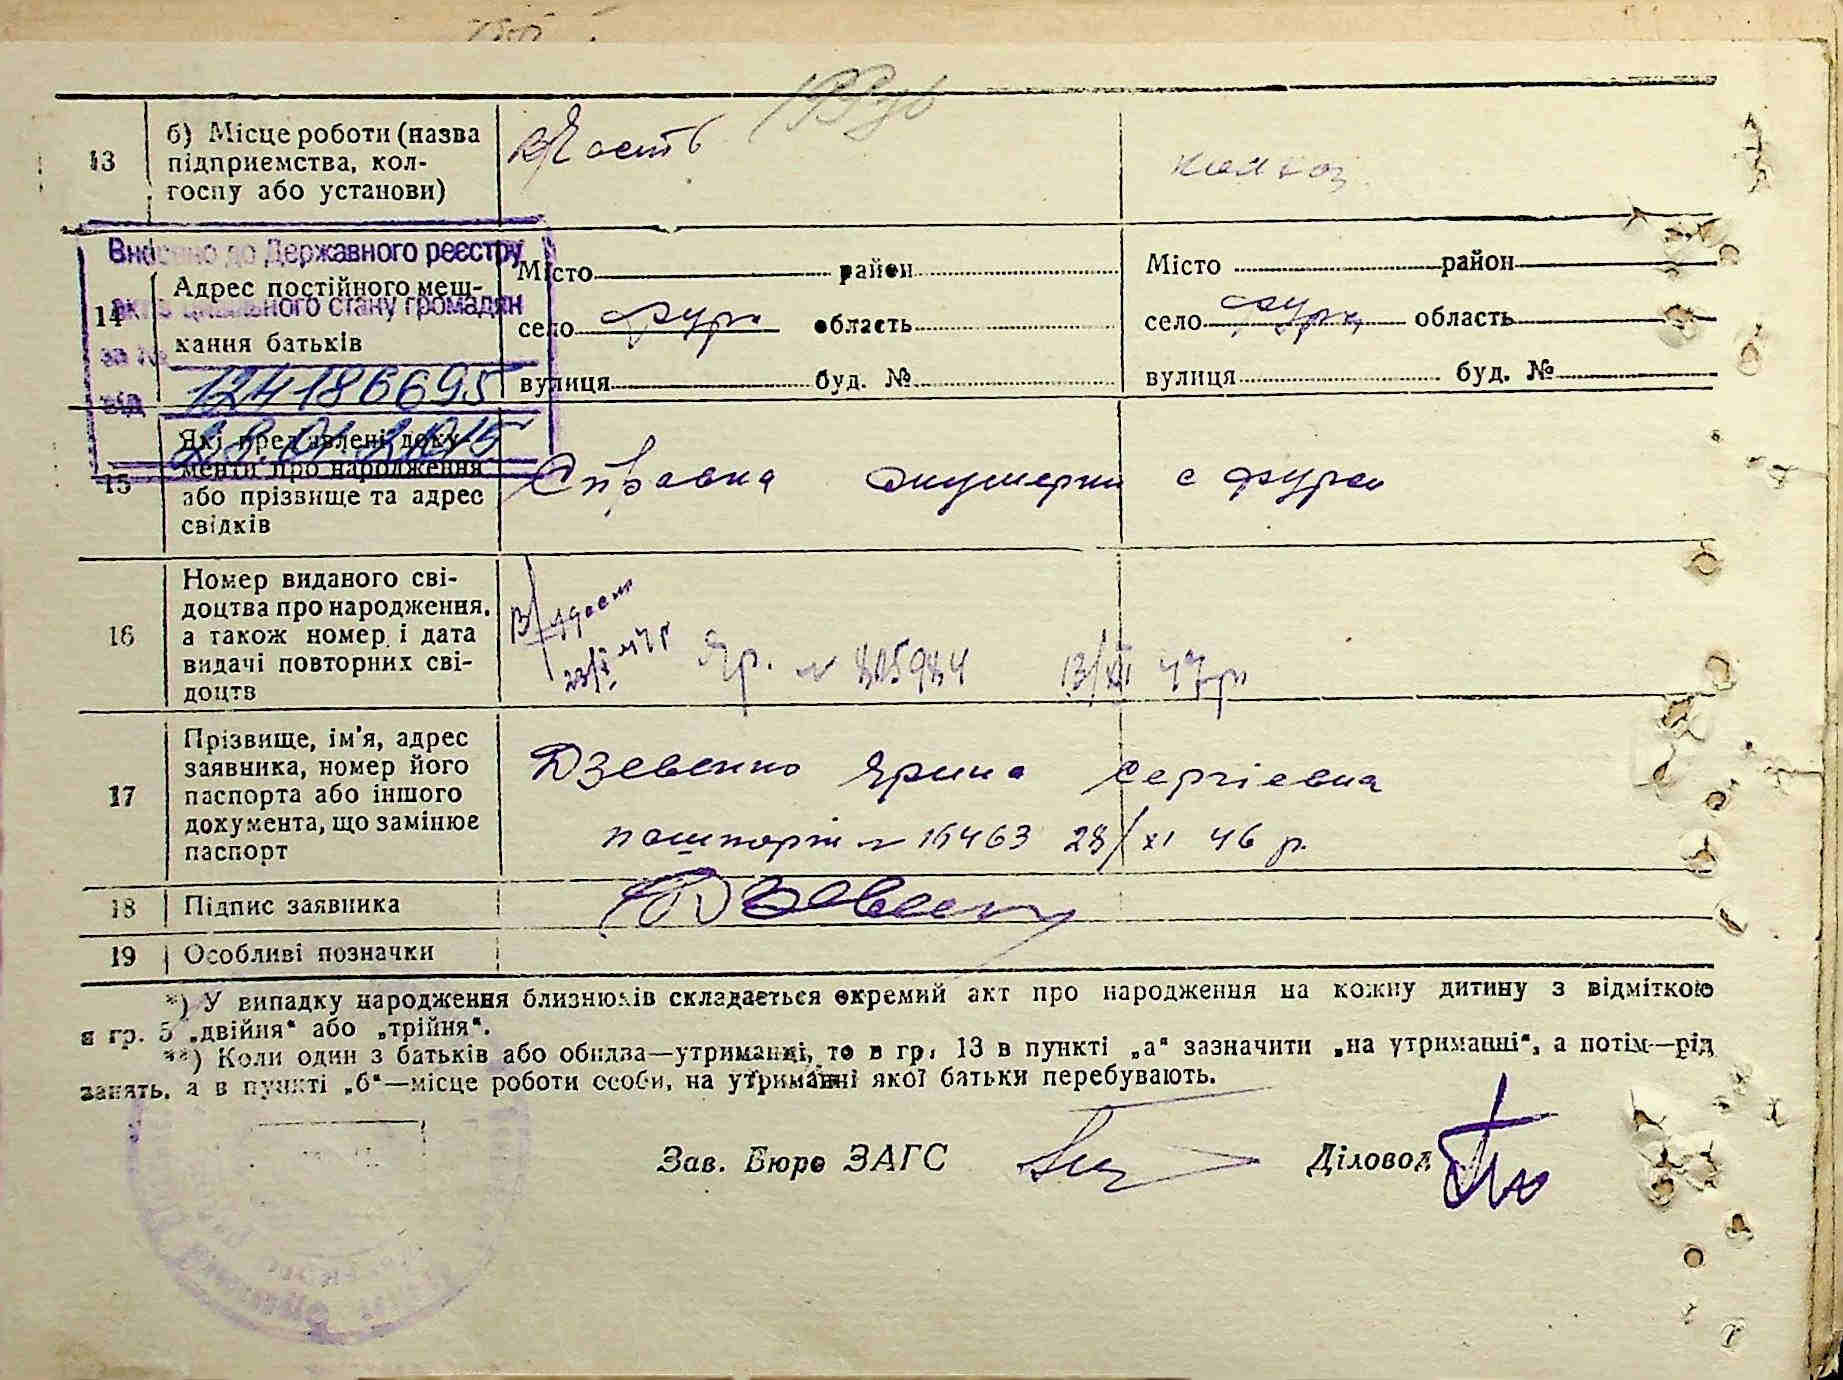 13
б) Місце роботи (назва
підприємства, кол-
госпу або установи)
в/часть
колхоз
Внесено до Державного реєстру
актів цивільного стану громадян
за №
124186695
від
28.01.2015
14
Адрес постійного меш-
кання батьків
Місто район
село область
вулиця буд. №
Місто район
село область
вулиця буд. №
15
Які пред'явлені доку-
менти про народження
або прізвище та адрес
свідків
Справка акушерки с
16
Номер виданого сві-
доцтва про народження,
а також номер і дата
видачі повторних сві-
доцтв
ЯР. № 815984 13/XII 47 р
17
Прізвище, ім'я, адрес
заявника, номер його
паспорта або іншого
документа, що замінює
паспорт
Дзевенко Ярина Сергіевна
пашпорт № 16463 28/XI 46 р.
18
Підпис заявника
19
Особливі позначки
*) У випадку народження близнюків складається окремий акт про народження на кожну дитину з відміткою
в гр. 5 „двійня“ або „трійня“.
**) Коли один з батьків або обидва—утриманці, то в гр. 13 в пункті „а“ зазначити „на утриманні“, а потім—рід
занять, а в пункті „б“—місце роботи особи, на утриманні якої батьки перебувають.
Зав. Бюро ЗАГС
Діловод